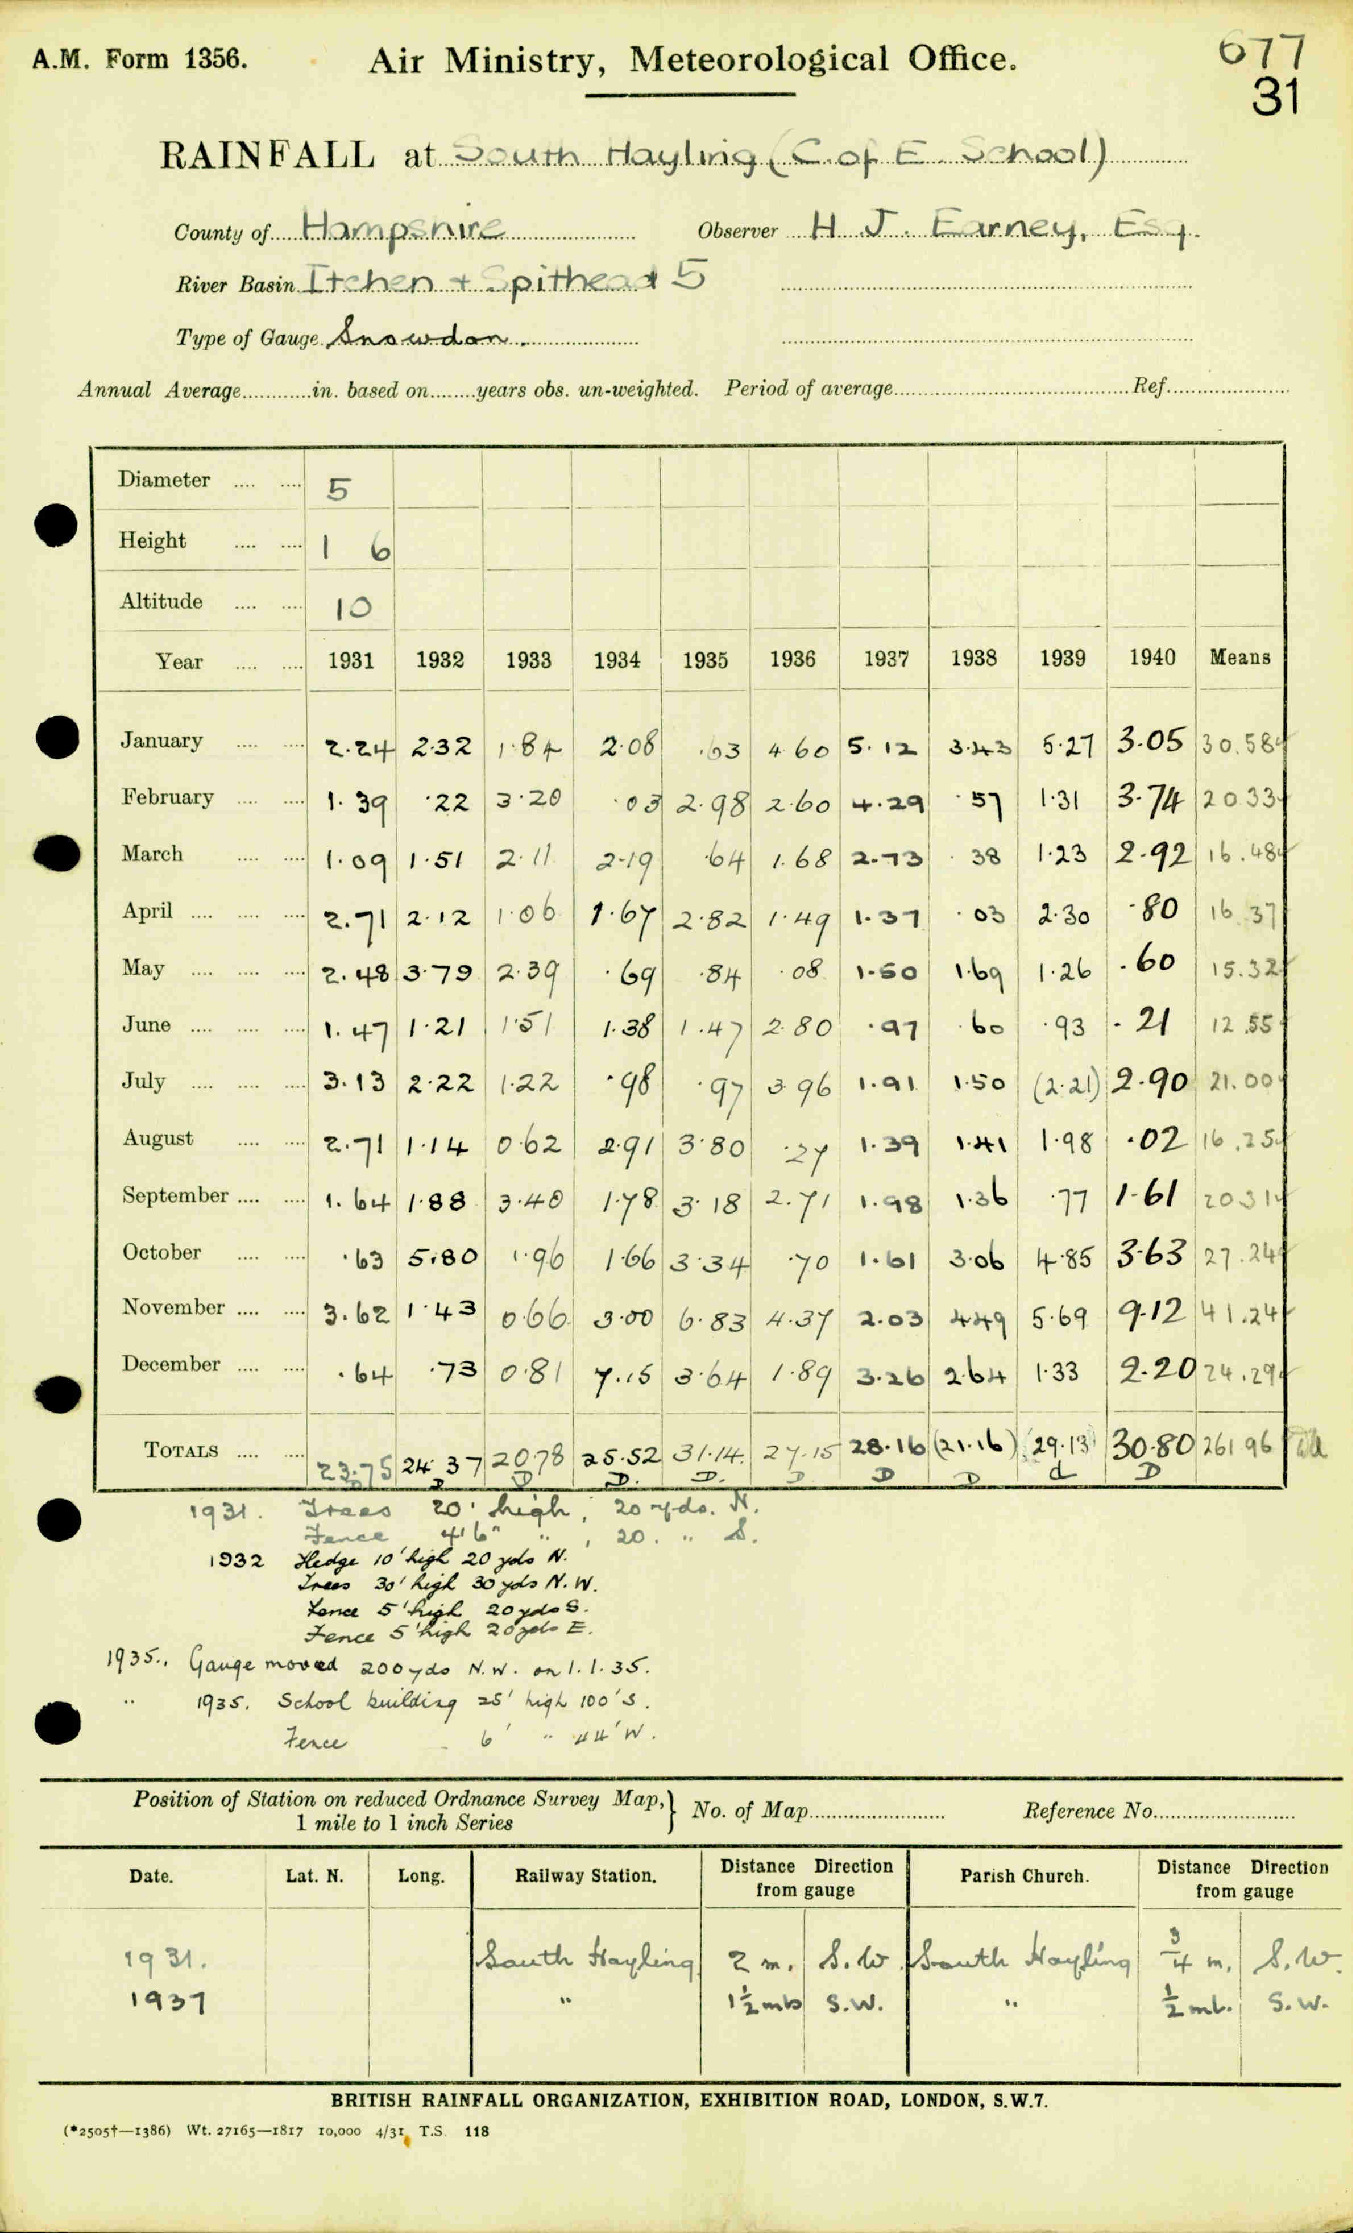 A.M. Form 1356. Air Ministry, Meteorological Office. 677
31
RAINFALL at South Hayling (C. of E. School)
County of Hampshire Observer H. J. Earney, Esq.
River Basin Itchen + Spithead 5
Type of Gauge Snowdon.
Annual Average in. based on years obs. un-weighted. Period of average Ref.
Diameter 5
Height 1 6
Altitude 10
Year 1931 1932 1933 1934 1935 1936 1937 1938 1939 1940 Means
January 2.24 2.32 1.84 2.08 .63 4.60 5.12 3.43 5.27 3.05 30.58
February 1.39 .22 3.20 .03 2.98 2.60 4.29 .57 1.31 3.74 20.33
March 1.09 1.51 2.11 2.19 .64 1.68 2.73 .38 1.23 2.92 16.48
April 2.71 2.12 1.06 1.67 2.82 1.49 1.37 .03 2.30 .80 16.37
May 2.48 3.79 2.39 .69 .84 .08 1.50 1.69 1.26 .60 15.32
June 1.47 1.21 1.51 1.38 1.47 2.80 .97 .60 .93 .21 12.55
July 3.13 2.22 1.22 .98 .97 3.96 1.91 1.50 (2.21) 2.90 21.00
August 2.71 1.14 0.62 2.91 3.80 .27 1.39 1.41 1.98 .02 16.25
September 1.64 1.88 3.40 1.78 3.18 2.71 1.98 1.36 .77 1.61 20.31
October .63 5.80 1.96 1.66 3.34 .70 1.61 3.06 4.85 3.63 27.24
November 3.62 1.43 0.66 3.00 6.83 4.37 2.03 4.49 5.69 9.12 41.24
December .64 .73 0.81 7.15 3.64 1.89 3.26 2.64 1.33 2.20 24.29
TOTALS 23.75 24.37 20.78 25.52 31.14 27.15 28.16 (21.16) (29.13) 30.80 261.96
D D D D. D. D D D d D
1931. Trees 20' high, 20 yds. N.
Fence 4'6" " , 20. " S.
1932 Hedge 10' high 20 yds N.
Trees 30' high 30 yds N.W.
Fence 5' high 20 yds S.
Fence 5' high 20 yds E.
1935., Gauge moved 200 yds N.W. on 1.1.35.
" 1935. School building 25' high 100' S.
Fence 6' " 44' W.
Position of Station on reduced Ordnance Survey Map, } No. of Map Reference No.
1 mile to 1 inch Series
Date. Lat. N. Long. Railway Station. Distance Direction from gauge Parish Church. Distance Direction from gauge
1931. South Hayling 2 m. S.W. South Hayling 3/4 m. S.W.
1937 " 1 1/2 mls S.W. " 1/2 ml. S.W.
BRITISH RAINFALL ORGANIZATION, EXHIBITION ROAD, LONDON, S.W.7.
(*2505†—1386) Wt. 27165—1817 10,000 4/31 T.S. 118